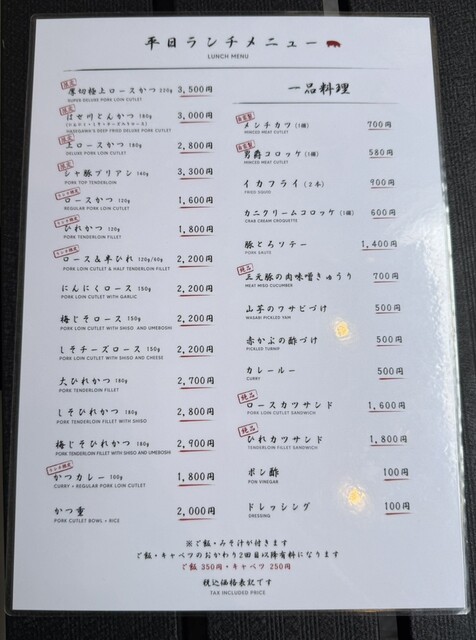 平日ランチメニュー
LUNCH MENU
限定
厚切極上ロースかつ 220g 3,500円
SUPER DELUXE PORK LOIN CUTLET
限定
はせ川とんかつ 180g 3,000円
HASEGAWA'S DEEP FRIED DELUXE PORK CUTLET
限定
上ロースかつ 180g 2,800円
DELUXE PORK LOIN CUTLET
限定
シャ豚ブリアン 140g 3,300円
PORK TOP TENDERLOIN
ランチ限定
ロースかつ 120g 1,600円
REGULAR PORK LOIN CUTLET
ランチ限定
ひれかつ 120g 1,800円
PORK TENDERLOIN FILLET
ランチ限定
ロース&半ひれ 120g/60g 2,200円
PORK LOIN CUTLET & HALF TENDERLOIN FILLET
にんにくロース 150g 2,200円
PORK LOIN CUTLET WITH GARLIC
梅じそロース 150g 2,200円
PORK LOIN CUTLET WITH SHISO AND UMEBOSHI
しそチーズロース 150g 2,200円
PORK LOIN CUTLET WITH SHISO AND CHEESE
大ひれかつ 180g 2,700円
PORK TENDERLOIN FILLET
しそひれかつ 180g 2,800円
PORK TENDERLOIN FILLET WITH SHISO
梅じそひれかつ 180g 2,900円
PORK TENDERLOIN FILLET WITH SHISO AND UMEBOSHI
ランチ限定
かつカレー 100g 1,800円
CURRY + REGULAR PORK LOIN CUTLET
かつ重 2,000円
PORK CUTLET BOWL + RICE
一品料理
自家製
メンチカツ (1個) 700円
MINCED MEAT CUTLET
自家製
男爵コロッケ (1個) 580円
MINCED MEAT CUTLET
イカフライ (2本) 900円
FRIED SQUID
カニクリームコロッケ (1個) 600円
CRAB CREAM CROQUETTE
豚とろソテー 1,400円
PORK SAUTE
純品
三元豚の肉味噌きゅうり 700円
MEAT MISO CUCUMBER
山芋のワサビづけ 500円
WASABI PICKLED YAM
赤かぶの酢づけ 500円
PICKLED TURNIP
カレールー 500円
CURRY
純品
ロースカツサンド 1,600円
PORK LOIN CUTLET SANDWICH
純品
ひれカツサンド 1,800円
PORK TENDERLOIN FILLET SANDWICH
ポン酢 100円
PON VINEGAR
ドレッシング 100円
DRESSING
※ご飯・みそ汁が付きます
ご飯・キャベツのおかわり2回目以降有料になります
ご飯 350円・キャベツ 250円
税込価格表記です
TAX INCLUDED PRICE